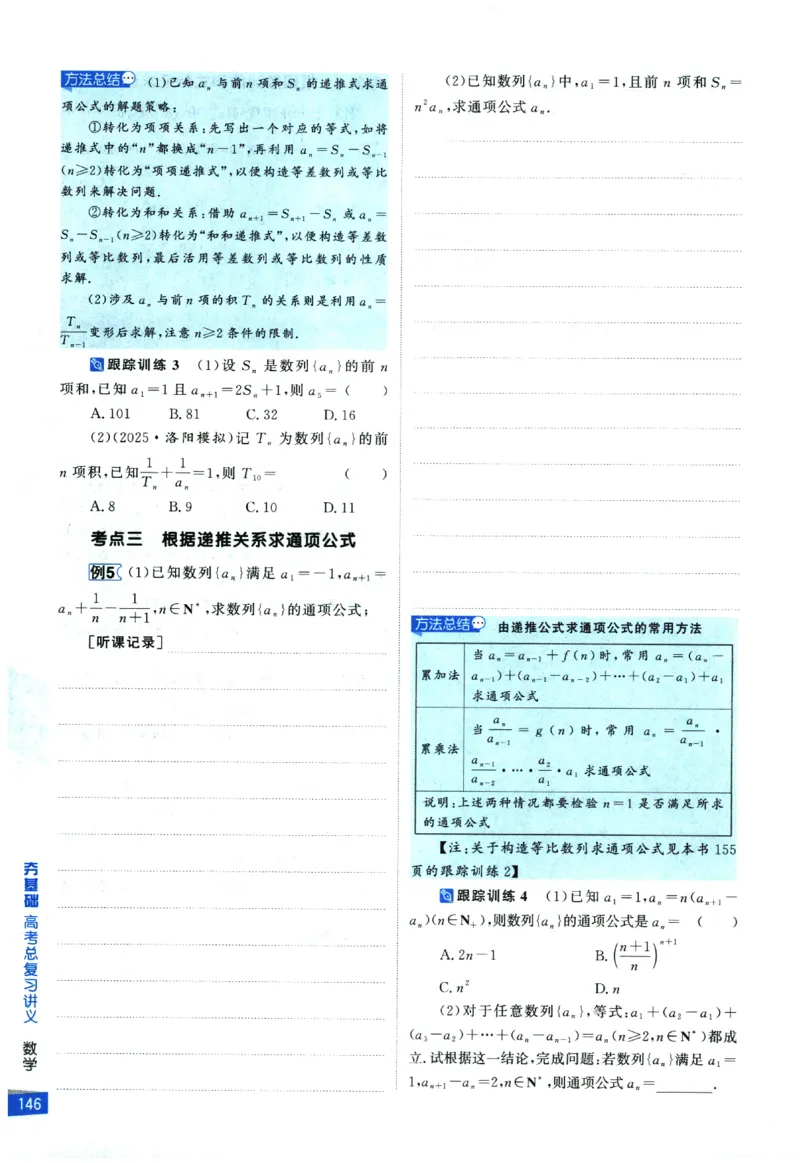 方法总结 (1)已知 aₙ 与前 n 项和 Sₙ 的递推式求通
项公式的解题策略:
①转化为项项关系:先写出一个对应的等式,如将
递推式中的“n”都换成“n-1”,再利用 aₙ=Sₙ-Sₙ₋₁
(n≥2)转化为“项项递推式”,以便构造等差数列或等比
数列来解决问题.
②转化为和和关系:借助 aₙ₊₁=Sₙ₊₁-Sₙ 或 aₙ=
Sₙ-Sₙ₋₁(n≥2)转化为“和和递推式”,以便构造等差数
列或等比数列,最后活用等差数列或等比数列的性质
求解.
(2)涉及 aₙ 与前 n 项的积 Tₙ 的关系则是利用 aₙ=
Tₙ/Tₙ₋₁ 变形后求解,注意 n≥2 条件的限制.
跟踪训练 3 (1)设 Sₙ 是数列{aₙ}的前 n
项和,已知 a₁=1 且 aₙ₊₁=2Sₙ+1,则 a₅=( )
A.101 B.81 C.32 D.16
(2)(2025·洛阳模拟)记 Tₙ 为数列{aₙ}的前
n 项积,已知 1/Tₙ+1/aₙ=1,则 T₁₀= ( )
A.8 B.9 C.10 D.11
考点三 根据递推关系求通项公式
例5 (1)已知数列{aₙ}满足 a₁=-1,aₙ₊₁=
aₙ+1/n-1/(n+1),n∈N*,求数列{aₙ}的通项公式;
[听课记录]
(2)已知数列{aₙ}中,a₁=1,且前 n 项和 Sₙ=
n²aₙ,求通项公式 aₙ.
方法总结 由递推公式求通项公式的常用方法
累加法
当 aₙ=aₙ₋₁+f(n)时,常用 aₙ=(aₙ-
aₙ₋₁)+(aₙ₋₁-aₙ₋₂)+…+(a₂-a₁)+a₁
求通项公式
累乘法
当 aₙ/aₙ₋₁=g(n)时,常用 aₙ=aₙ/aₙ₋₁·
aₙ₋₁/aₙ₋₂·…·a₂/a₁·a₁ 求通项公式
说明:上述两种情况都要检验 n=1 是否满足所求
的通项公式
【注:关于构造等比数列求通项公式见本书 155
页的跟踪训练 2】
跟踪训练 4 (1)已知 a₁=1,aₙ=n(aₙ₊₁-
aₙ)(n∈N₊),则数列{aₙ}的通项公式是 aₙ= ( )
A.2n-1 B.((n+1)/n)ⁿ⁺¹
C.n² D.n
(2)对于任意数列{aₙ},等式:a₁+(a₂-a₁)+
(a₃-a₂)+…+(aₙ-aₙ₋₁)=aₙ(n≥2,n∈N*)都成
立.试根据这一结论,完成问题:若数列{aₙ}满足 a₁=
1,aₙ₊₁-aₙ=2,n∈N*,则通项公式 aₙ=______.
夯基础 高考总复习讲义 数学
146